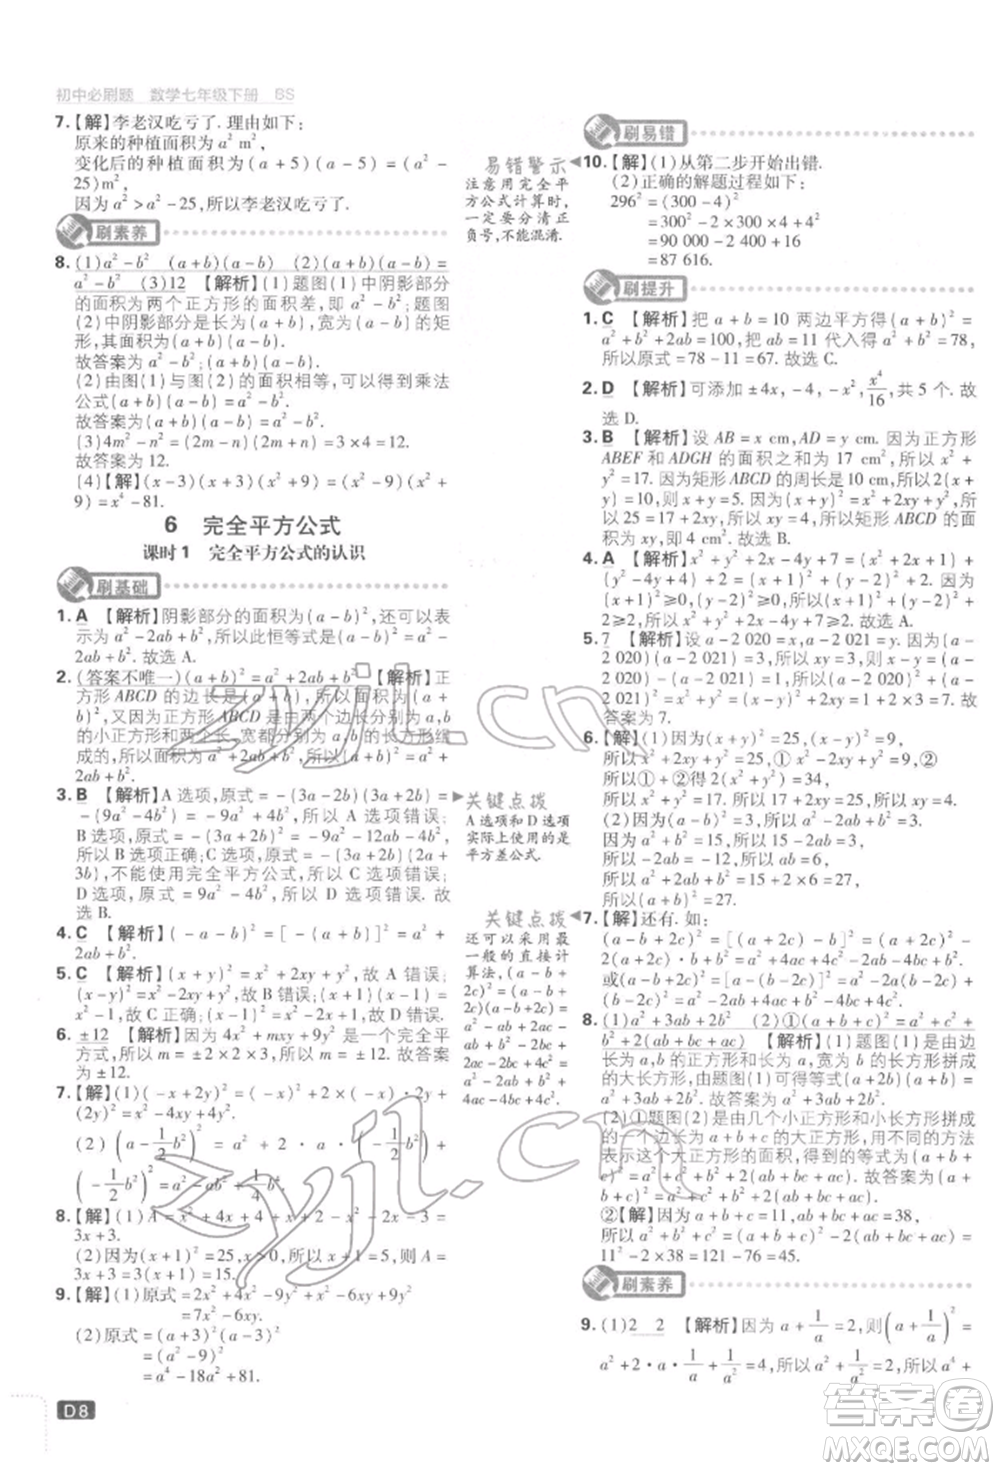 初中必刷题 数学七年级下册 BS
7.【解】李老汉吃亏了. 理由如下:
原来的种植面积为 a² m²,
变化后的种植面积为(a+5)(a-5)=(a²-
25)m²,
因为 a²>a²-25,所以李老汉吃亏了.
刷素养
8.(1)a²-b² (a+b)(a-b) (2)(a+b)(a-b)=
a²-b² (3)12 【解析】(1)题图(1)中阴影部分
的面积为两个正方形的面积差,即 a²-b²;题图
(2)中阴影部分是长为(a+b),宽为(a-b)的矩
形,其面积为(a+b)(a-b).
故答案为 a²-b²;(a+b)(a-b).
(2)由图(1)与图(2)的面积相等,可以得到乘法
公式(a+b)(a-b)=a²-b².
故答案为(a+b)(a-b)=a²-b².
(3)4m²-n²=(2m-n)(2m+n)=3×4=12.
故答案为 12.
(4)【解】(x-3)(x+3)(x²+9)=(x²-9)(x²+
9)=x⁴-81.
6 完全平方公式
课时1 完全平方公式的认识
刷基础
1. A 【解析】阴影部分的面积为(a-b)²,还可以表
示为 a²-2ab+b²,所以此恒等式是(a-b)²=
a²-2ab+b². 故选 A.
2.(答案不唯一)(a+b)²=a²+2ab+b² 【解析】正
方形 ABCD 的边长是(a+b),则面积是(a+
b)²,又因为正方形 ABCD 由两个边长分别为a,b
的小正方形和两个长、宽分别为a,b的长方形组
成,则面积是 a²+2ab+b²,所以(a+b)²=a²+
2ab+b².
3. B 【解析】A 选项,原式=(3a-2b)(3a+2b)=
(9a²-4b²)=9a²-4b²,所以 A 选项错误;
B 选项,原式=-(3a+2b)²=-9a²-12ab-4b²,
所以 B 选项正确;C 选项,原式=(3a+2b)(2a+
3b),不能使用完全平方公式,所以 C 选项错误;
D 选项,原式=-9a²+4b²,所以 D 选项错误. 故
选 B.
4. C 【解析】(-a-b)²=[-(a+b)]²=a²+
2ab+b².
5. C 【解析】(x+y)²=x²+2xy+y²,故 A 错误;
(-x+y)²=x²-2xy+y²,故 B 错误;(x+1)(x-1)=
x²-1,故 C 正确;(x-1)²=x²-2x+1,故 D 错误.
6. ±12 【解析】因为 4x²+mxy+9y² 是一个完全平
方式,所以 m=±(2×2×3)=±12,则 m=±12. 故答
案为 ±12.
7.【解】(1)(-x+2y)²=(-x)²+2×(-x)·2y+
(2y)²=x²-4xy+4y².
(2)(a-1/2b²)²=a²+2·a·(-1/2b²)+
(-1/2b²)²=a²-ab²+1/4b⁴.
8.【解】(1)A=x²+4x+4+2+x-2x-x²-3=
3x+3.
(2)因为(x+1)²=25,x>0,所以 x+1=5,则 A=
3x+3=3(x+1)=15.
9.【解】(1)原式=6x²-4xy+2xy+x²-4xy
=7x²-6xy.
(2)原式=(a+3)²(a-3)²
=(a²-9)²
=a⁴-18a²+81.
D8
易错警示
注意用完全平
方公式计算时,
一定要分清正
负号,不能混淆.
关键点拨
A 选项和 D 选项
实际上使用的是
平方差公式.
关键点拨
还可以采用最
一般的直接计
算法,(a+b+
2c)²=(a+b+
2c)(a+b+2c)=
a²+ab+2ac+
ab+b²+2bc+
2ac+2bc+4c²=
a²+b²+4c²+
2ab+4ac+4bc.
刷易错
10.【解】(1)从第二步开始出错.
(2)正确的解题过程如下:
296²=(300-4)²
=300²-2×300×4+4²
=90 000-2 400+16
=87 616.
刷提升
1. C 【解析】把 a+b=10 两边平方得(a+b)²=
a²+b²+2ab=100,把 ab=11 代入得 a²+b²=78,
所以原式=78-11=67. 故选 C.
2. D 【解析】可添加 ±4x,-4,-x²,x⁴/16,共 5 个. 故
选 D.
3. B 【解析】设 AB=x cm,AD=y cm. 因为正方形
ABEF 和 ADGH 的面积之和为 17 cm²,所以 x²+
y²=17. 因为矩形 ABCD 的周长是 10 cm,所以2(x+
y)=10,即 x+y=5. 因为(x+y)²=x²+2xy+y²,所
以 25=17+2xy,所以 xy=4,所以矩形 ABCD 的面
积为 xy=4 cm². 故选 B.
4. A 【解析】x²+y²+2x-4y+7=(x²+2x+1)+
(y²-4y+4)+2=(x+1)²+(y-2)²+2. 因为(x+
1)²≥0,(y-2)²≥0,所以(x+1)²+(y-2)²+
2≥2,所以 x²+y²+2x-4y+7≥2. 故选 A.
5. 7 【解析】设 a-2 020=x,a-2 021=y. 因为(a-
2 020)(a-2 021)=3,所以 xy=3. 因为(a-
2 020)-(a-2 021)=1,即 x-y=1,所以(x-
y)²=x²+y²-2xy=1,所以(a-2 020)²+(a-
2 021)²=x²+y²=(x-y)²+2xy=1+2×3=7. 故
答案为 7.
6.【解】(1)因为(x+y)²=25,(x-y)²=9,
所以 x²+2xy+y²=25①,x²-2xy+y²=9②,
所以①+②得 2(x²+y²)=34,
所以 x²+y²=17.
(2)因为(a-b)²=3,a²+b²=15,
所以 a²-2ab+b²=3,
所以 -2ab=-12,所以 2ab=12,
所以 a²+2ab+b²=15+12=27,
所以(a+b)²=27.
7.【解】还有. 如:
(a+b+2c)²=[(a+2c)+b]²=(a+2c)²+2b(a+
2c)+b²=a²+4ac+4c²+2ab+4bc+b²;
或(a+b+2c)²=[a+(b+2c)]²=a²+2a(b+2c)+
(b+2c)²=a²+2ab+4ac+b²+4bc+4c².
8.(1)a²+3ab+2b² (2)①(a+b+c)²=a²+c²+
b²+2(ab+bc+ac) 【解析】(1)题图(1)是由边
长为 a,b的正方形和长为 a,宽为 b的长方形拼成
的大长方形,所以由面积可得等式(a+2b)(a+b)=
a²+3ab+2b². 故答案为 a²+3ab+2b².
(2)①题图(2)是由几个小正方形和小长方形拼成
的一个边长为 a+b+c 的大正方形,用不同的方法
表示这个大正方形的面积,得到的等式为(a+b+
c)²=a²+b²+c²+2(ab+bc+ac). 故答案为(a+
b+c)²=a²+c²+b²+2(ab+bc+ac).
②【解】因为 a+b+c=11,ab+bc+ac=38,
所以 a²+b²+c²=(a+b+c)²-2(ab+bc+ac)=
11²-2×38=121-76=45.
刷素养
9.(1)2 2 【解析】因为 a+1/a=2,则(a+1/a)²=
a²+2·a·1/a+1/a²=4,所以 a²+1/a²=2,所以 a⁴+
zyjl.cn
zyjl.cn
答案圈
MXQE.COM